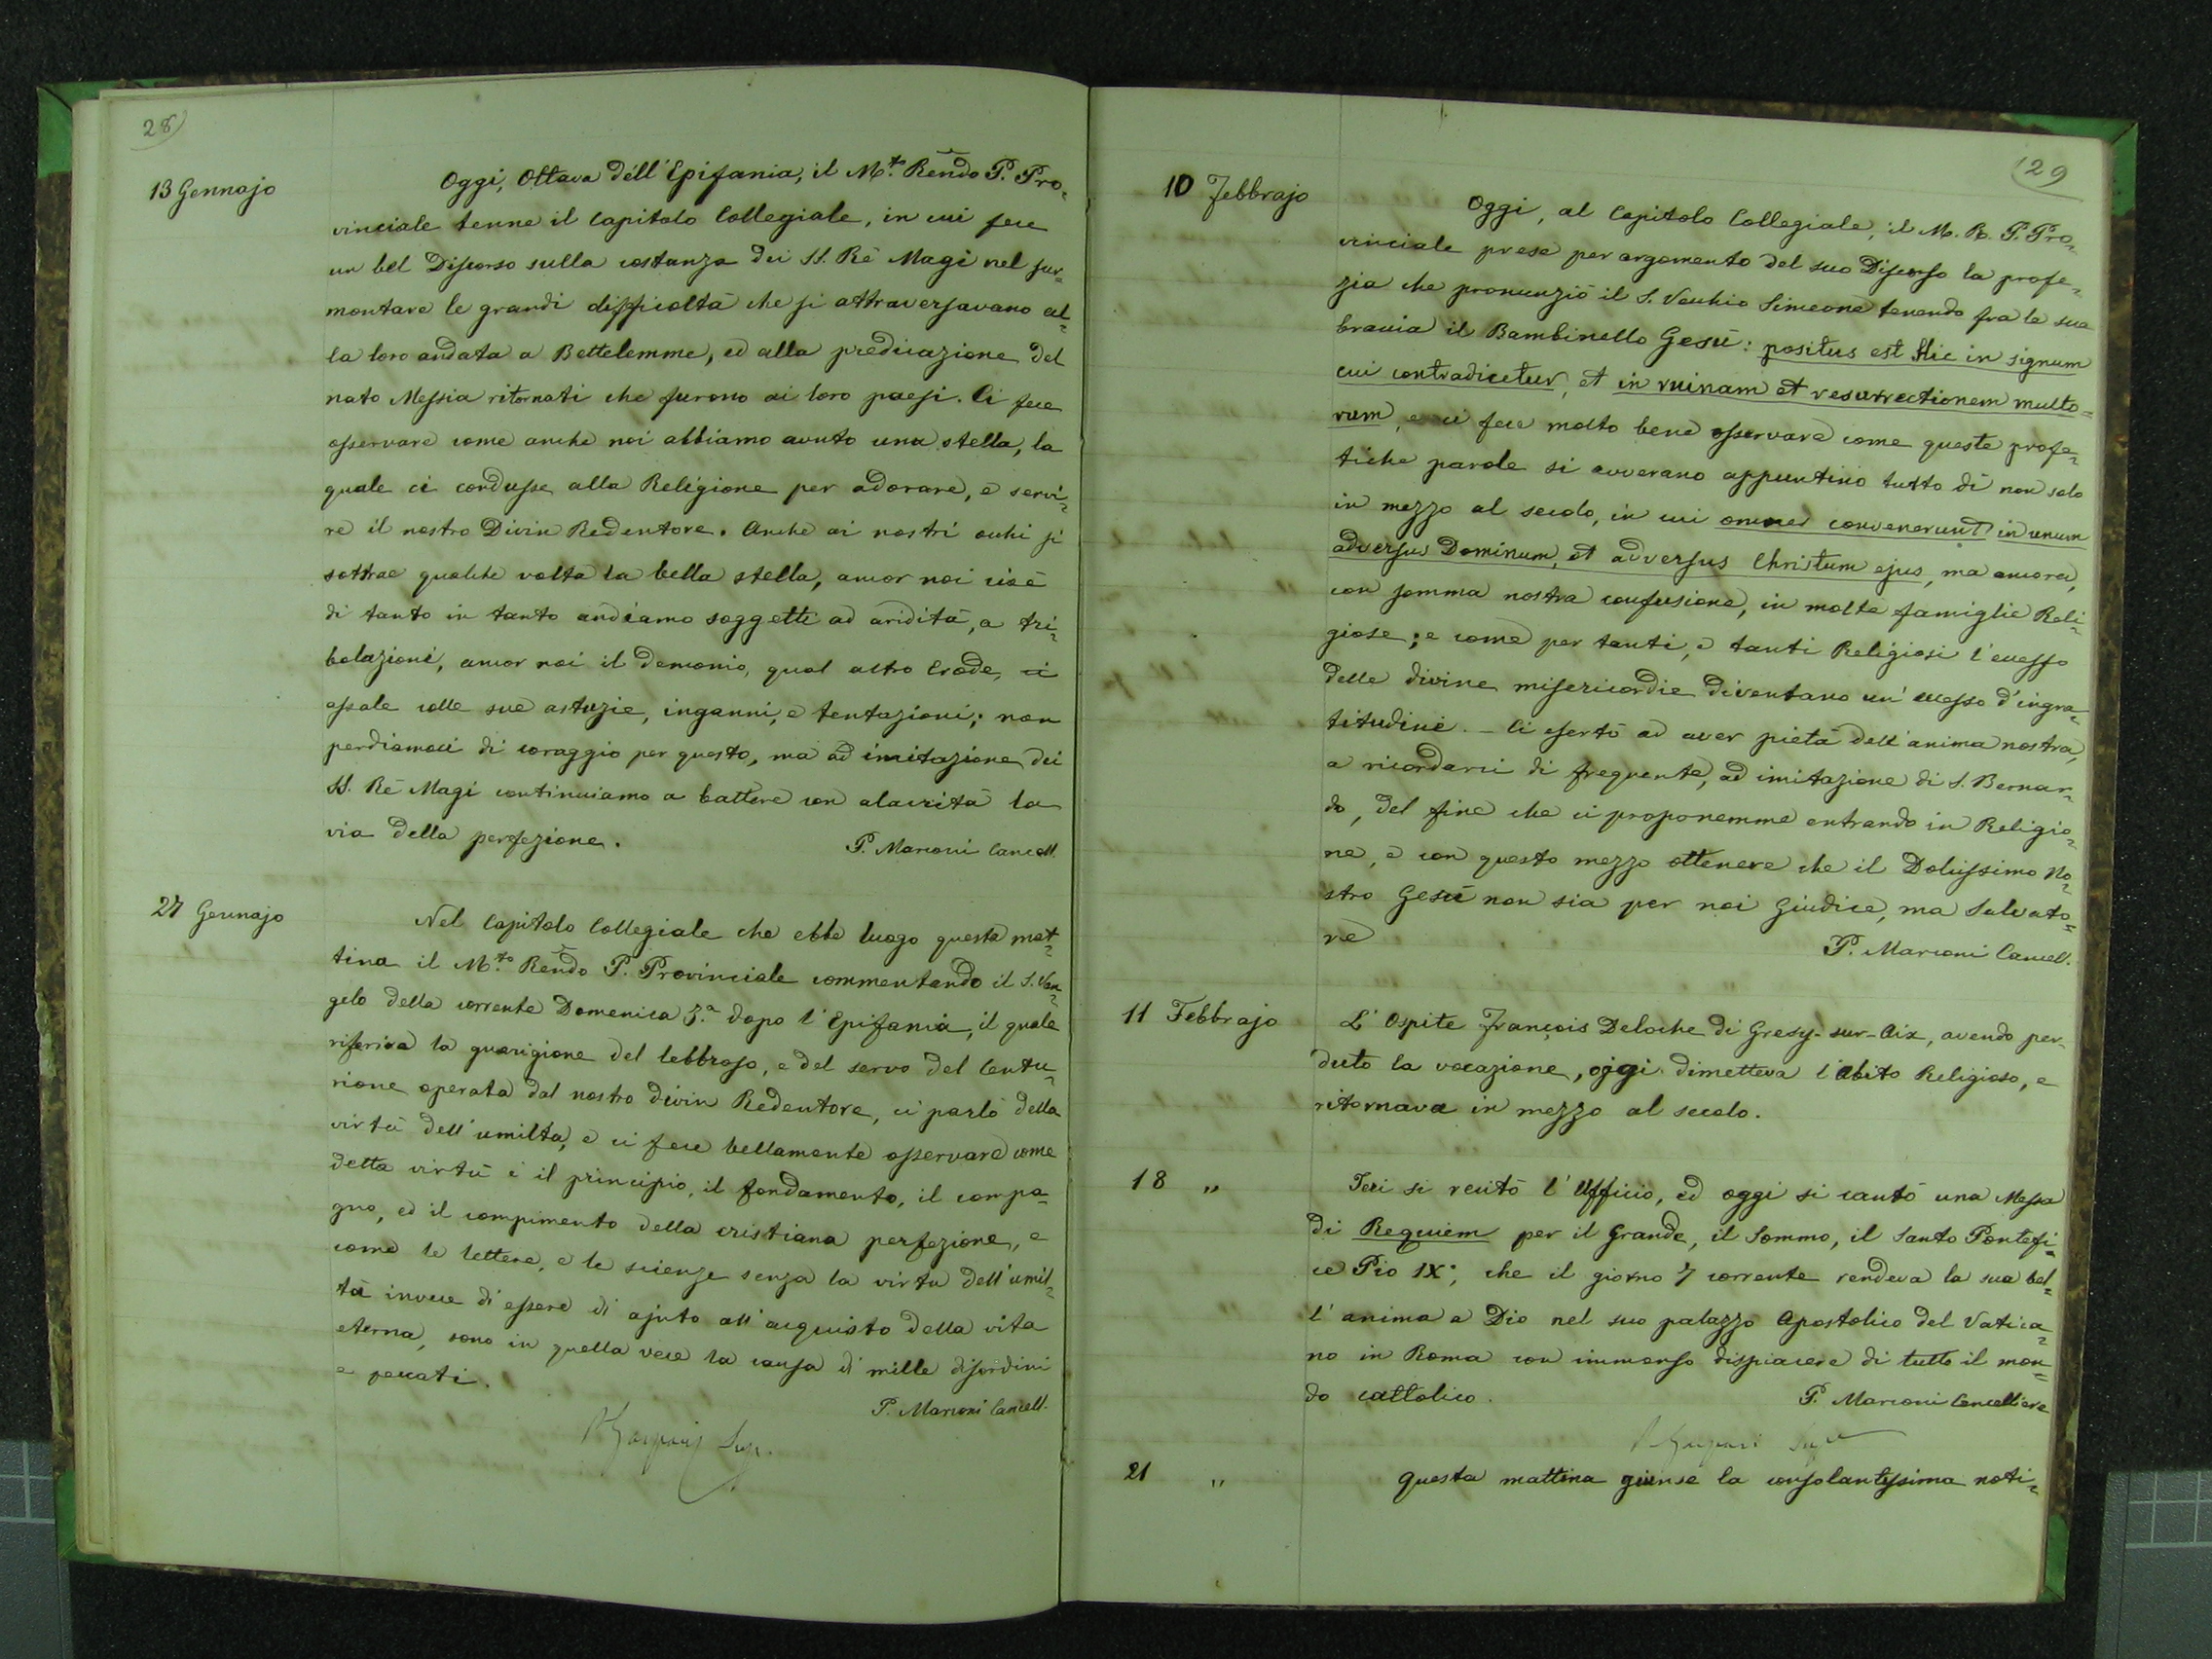 28)
13 Gennajo
Oggi, Ottava dell'Epifania, il M.to Rendo P. Pro=
vinciale tenne il Capitolo Collegiale, in cui fece
un bel Discorso sulla costanza dei SS. Re Magi nel sur=
montare le grandi difficoltà che si attraversavano al=
la loro andata a Bettelemme, ed alla predicazione del
nato Messia ritornati che furono ai loro paesi. Ci fece
osservare come anche noi abbiamo avuto una stella, la
quale ci condusse alla Religione per adorare, e servi=
re il nostro Divin Redentore. Anche ai nostri occhi si
sottrae qualche volta la bella stella, ancor noi cioè
di tanto in tanto andiamo soggetti ad aridità, a tri=
bolazioni, ancor noi il demonio, qual altro Erode, ci
assale colle sue astuzie, inganni, e tentazioni; non
perdiamoci di coraggio per questo, ma ad imitazione dei
SS. Re Magi continuiamo a battere con alacrità la
via della perfezione.
P. Marconi Cancell.
27 Gennajo
Nel Capitolo Collegiale che ebbe luogo questa mat=
tina il M.to Rendo P. Provinciale commentando il S. Van=
gelo della corrente Domenica 3.a dopo l'Epifania, il quale
riferiva la guarigione del lebbroso, e del servo del Centu=
rione operata dal nostro divin Redentore, ci parlò della
virtù dell'umiltà, e ci fece bellamente osservare come
detta virtù è il principio, il fondamento, il compa=
gno, ed il compimento della cristiana perfezione, e
come le lettere, e le scienze senza la virtù dell'umil=
tà invece d'essere di ajuto all'acquisto della vita
eterna, sono in quella vece la causa di mille disordini
e peccati.
P. Marconi Cancell.
Sup.
129
10 Febbrajo
Oggi, al Capitolo Collegiale, il M. R. P. Pro=
vinciale prese per argomento del suo Discorso la profe=
zia che pronunziò il S. Vecchio Simeone tenendo fra le sue
braccia il Bambinello Gesù: positus est Hic in signum
cui contradicetur, et in ruinam et resurrectionem multo=
rum, e ci fece molto bene osservare come queste profe=
tiche parole si avverano appuntino tutto dì non solo
in mezzo al secolo, in cui omnes convenerunt in unum
adversus Dominum, et adversus Christum ejus, ma ancora,
con somma nostra confusione, in molte famiglie Reli=
giose; e come per tanti, e tanti Religiosi l'eccesso
delle divine misericordie diventano un'eccesso d'ingra=
titudine. - Ci esortò ad aver pietà dell'anima nostra,
a ricordarci di frequente, ad imitazione di S. Bernar=
do, del fine che ci proponemmo entrando in Religio=
ne, e con questo mezzo ottenere che il Dolcissimo No=
stro Gesù non sia per noi Giudice, ma Salvato=
re
P. Marconi Cancell.
11 Febbrajo
L'Ospite François Deloche di Gresy-sur-Aix, avendo per=
duto la vocazione, oggi dimetteva l'abito Religioso, e
ritornava in mezzo al secolo.
18 "
Ieri si recitò l'Ufficio, ed oggi si cantò una Messa
di Requiem per il Grande, il Sommo, il Santo Pontefi=
ce Pio IX°, che il giorno 7 corrente rendeva la sua bel=
l'anima a Dio nel suo palazzo Apostolico del Vatica=
no in Roma con immenso dispiacere di tutto il mon=
do cattolico.
P. Marconi Cancelliere
21 "
Questa mattina giunse la consolantissima noti=